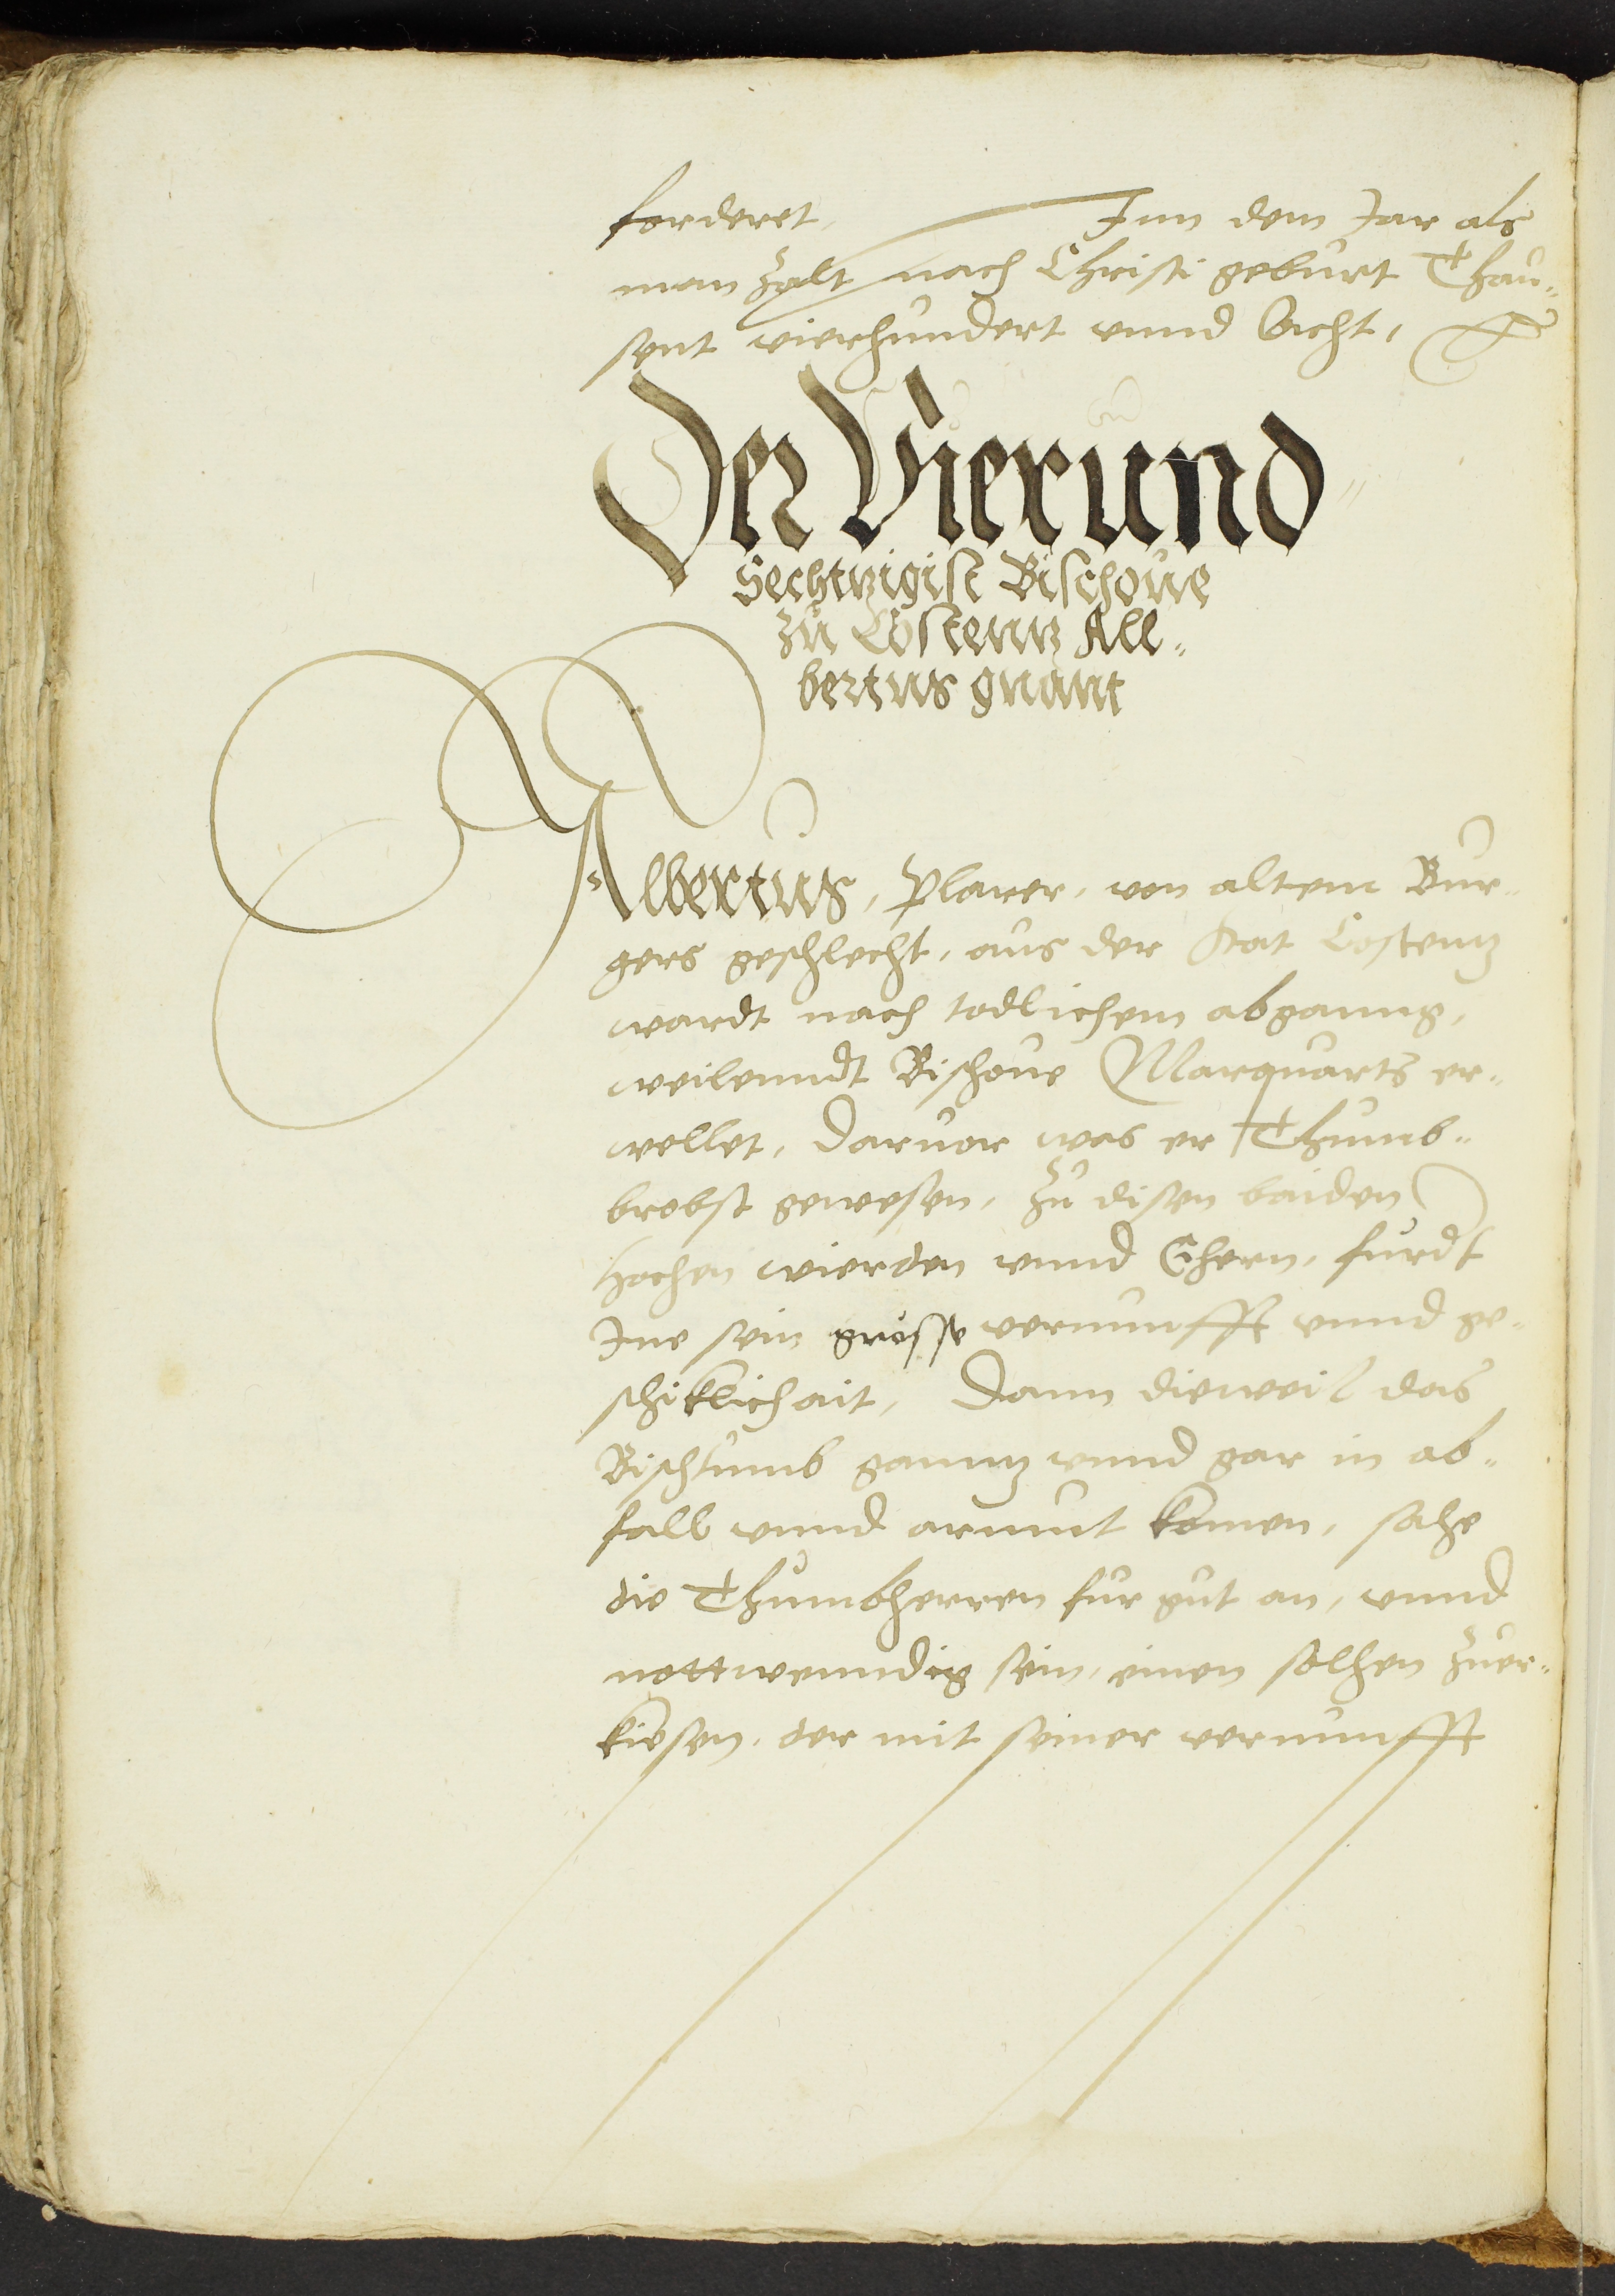 forderet, Inn dem Jar als
man zalt nach Christi geburt Thau-
sent vierhundert vnnd Acht,
Der Vierund-
Sechtzigist Bischoue
zů Costentz All-
bertus gnant
Albertus, Plarer, von altem Bur-
gers geschlecht, aus der stat Costentz
wardt nach todlichem abganng,
weilenndt Bischoue Marquarts er-
wellet, daruor was er Thumb-
brobst gewesen, zů disen baiden
hochen wierden vnnd Ehern, furdt
Ine sein grosse vernunfft vnnd ge-
schiklichait, Dann dieweil das
Bischtumb ganntz vnnd gar in ab-
fall vnnd armut komen, sahe
die Thumbherren fur gut an, vnnd
nottwenndig sein, einen solhen zuer-
kiesen, der mit seiner vernunfft